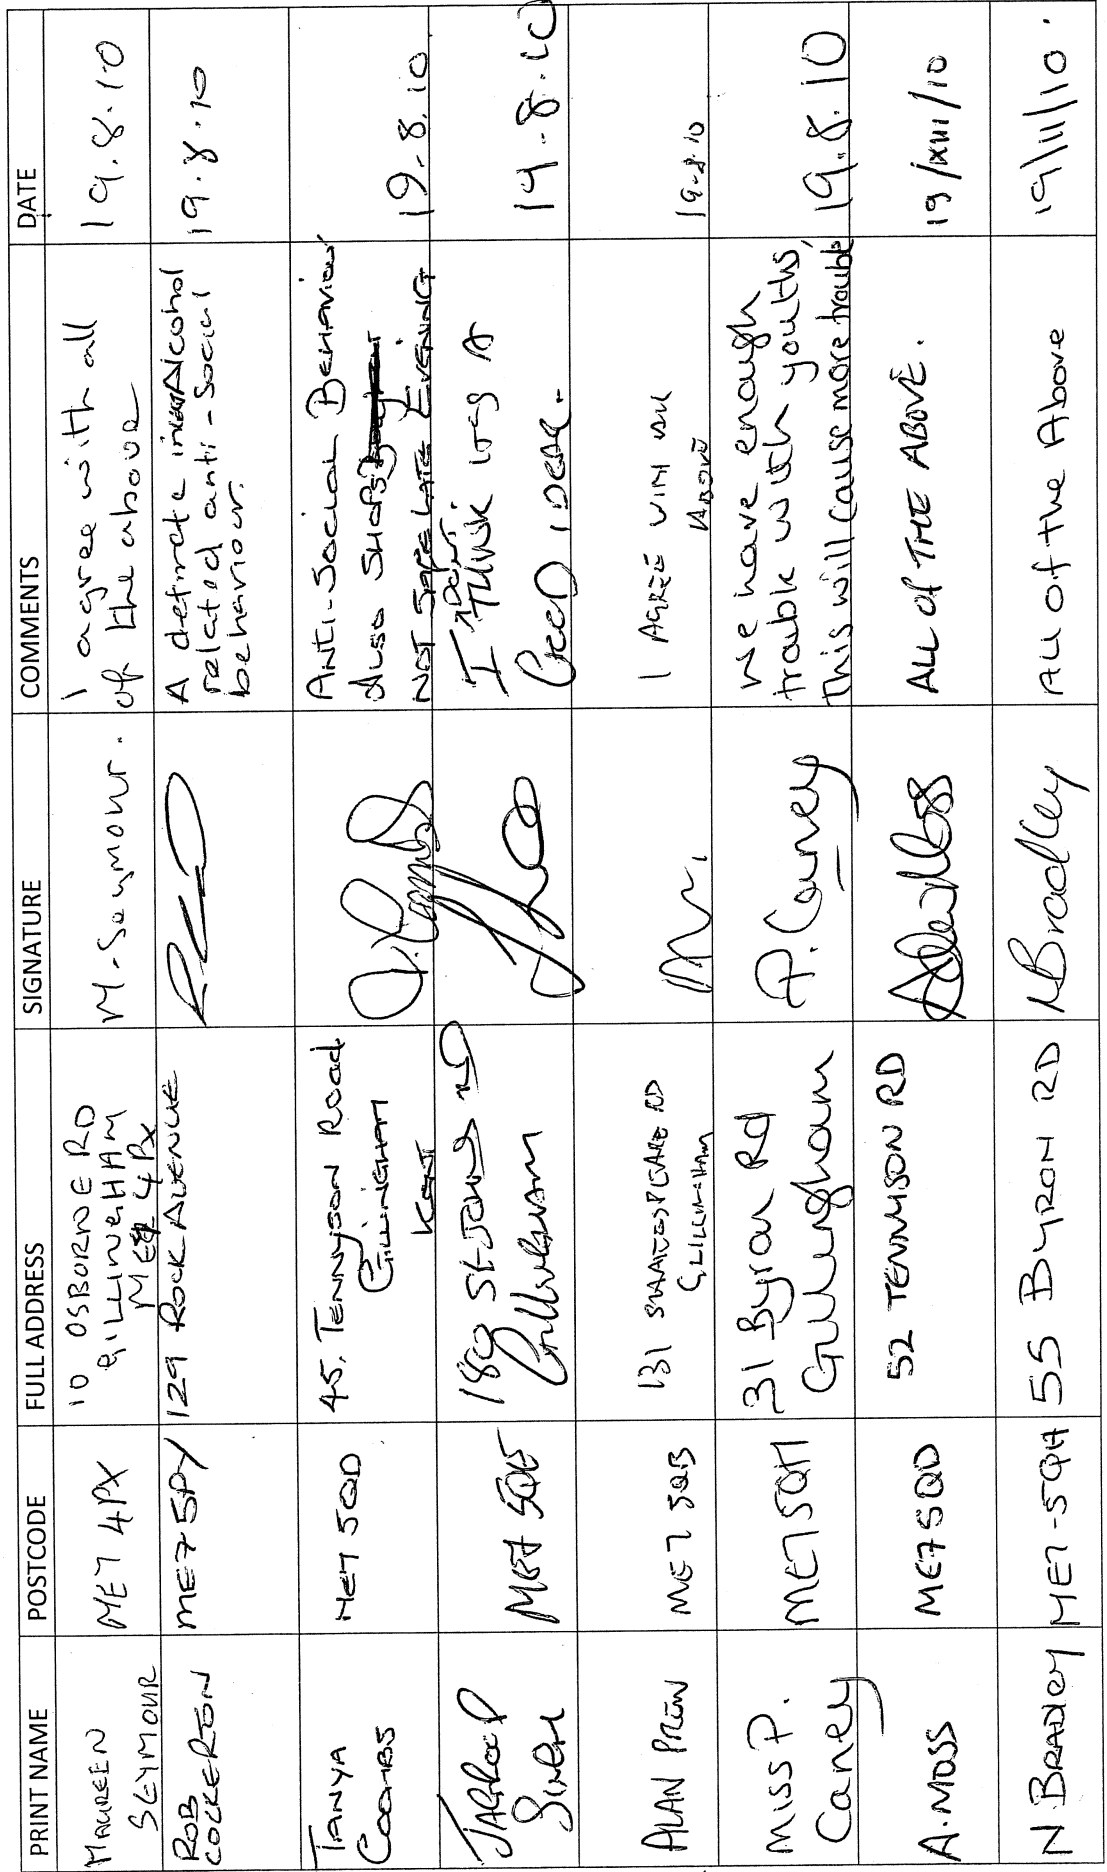 PRINT NAME POSTCODE FULL ADDRESS SIGNATURE COMMENTS DATE
MAUREEN
SEYMOUR
ME7 4PX
10 OSBORNE RD
GILLINGHAM
ME7 4PX
M. Seymour.
I agree with all
of the above
19.8.10
ROB
COCKERTON
ME7 5PY
129 ROCK AVENUE
A definate in Alcohol
related anti-social
behaviour.
19.8.10
TANYA
COOMBS
ME7 5QD
45, TENNYSON Road
GILLINGHAM
KENT
ANTI-SOCIAL BEHAVIOUR
ALSO SHOPS
NOT SAFE LATE EVENING
19.8.10
JAGROOP
SINGH
ME7 5QE
189 ST. JOHNS RD
Gillingham
I DON'T
THINK ITS A
GOOD IDEAR.
19.8.10
ALAN
ME7 5QB
131 SHAKESPEARE RD
GILLINGHAM
I AGREE WITH ALL
ABOVE
19.8.10
MISS P.
Caney
ME7 5QH
31 Byron Rd
Gillingham
P. Caney
We have enough
trouble with youths,
this will cause more trouble
19.8.10
A. MOSS
ME7 5QD
52 TENNYSON RD
ALL OF THE ABOVE.
19/IXIII/10
N. BRADLEY
ME7-5QH
55 BYRON RD
NBradley
All of the Above
19/11/10.